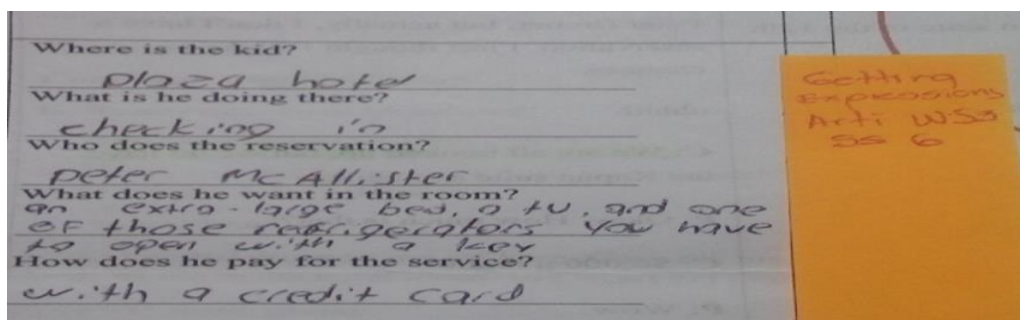 Where is the kid?
plaza hotel
What is he doing there?
checking in
Who does the reservation?
peter McAllister
What does he want in the room?
an extra-large bed, a tv, and one
of those refrigerators you have
to open with a key
How does he pay for the service?
with a credit card
Getting
Expressions
Arti WS3
SS 6